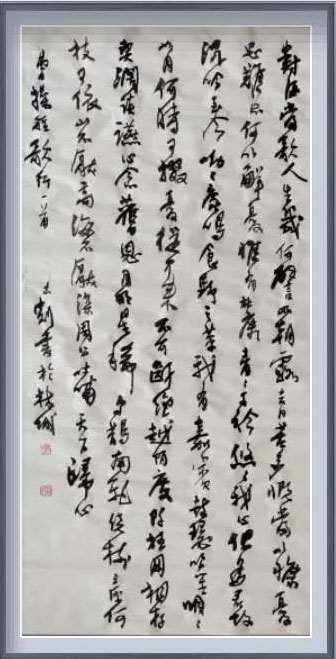 對酒當歌人生幾何譬如朝露去日苦多慨當以慷憂
思難忘何以解憂惟有杜康青青子衿悠悠我心但為君故
沉吟至今呦呦鹿鳴食野之苹我有嘉賓鼓瑟吹笙明明
如月何時可掇憂從中來不可斷絕越陌度阡枉用相存
契闊談讌心念舊恩月明星稀烏鵲南飛繞樹三匝何
枝可依山不厭高海不厭深周公吐哺天下歸心
曹操短歌行一首 書於